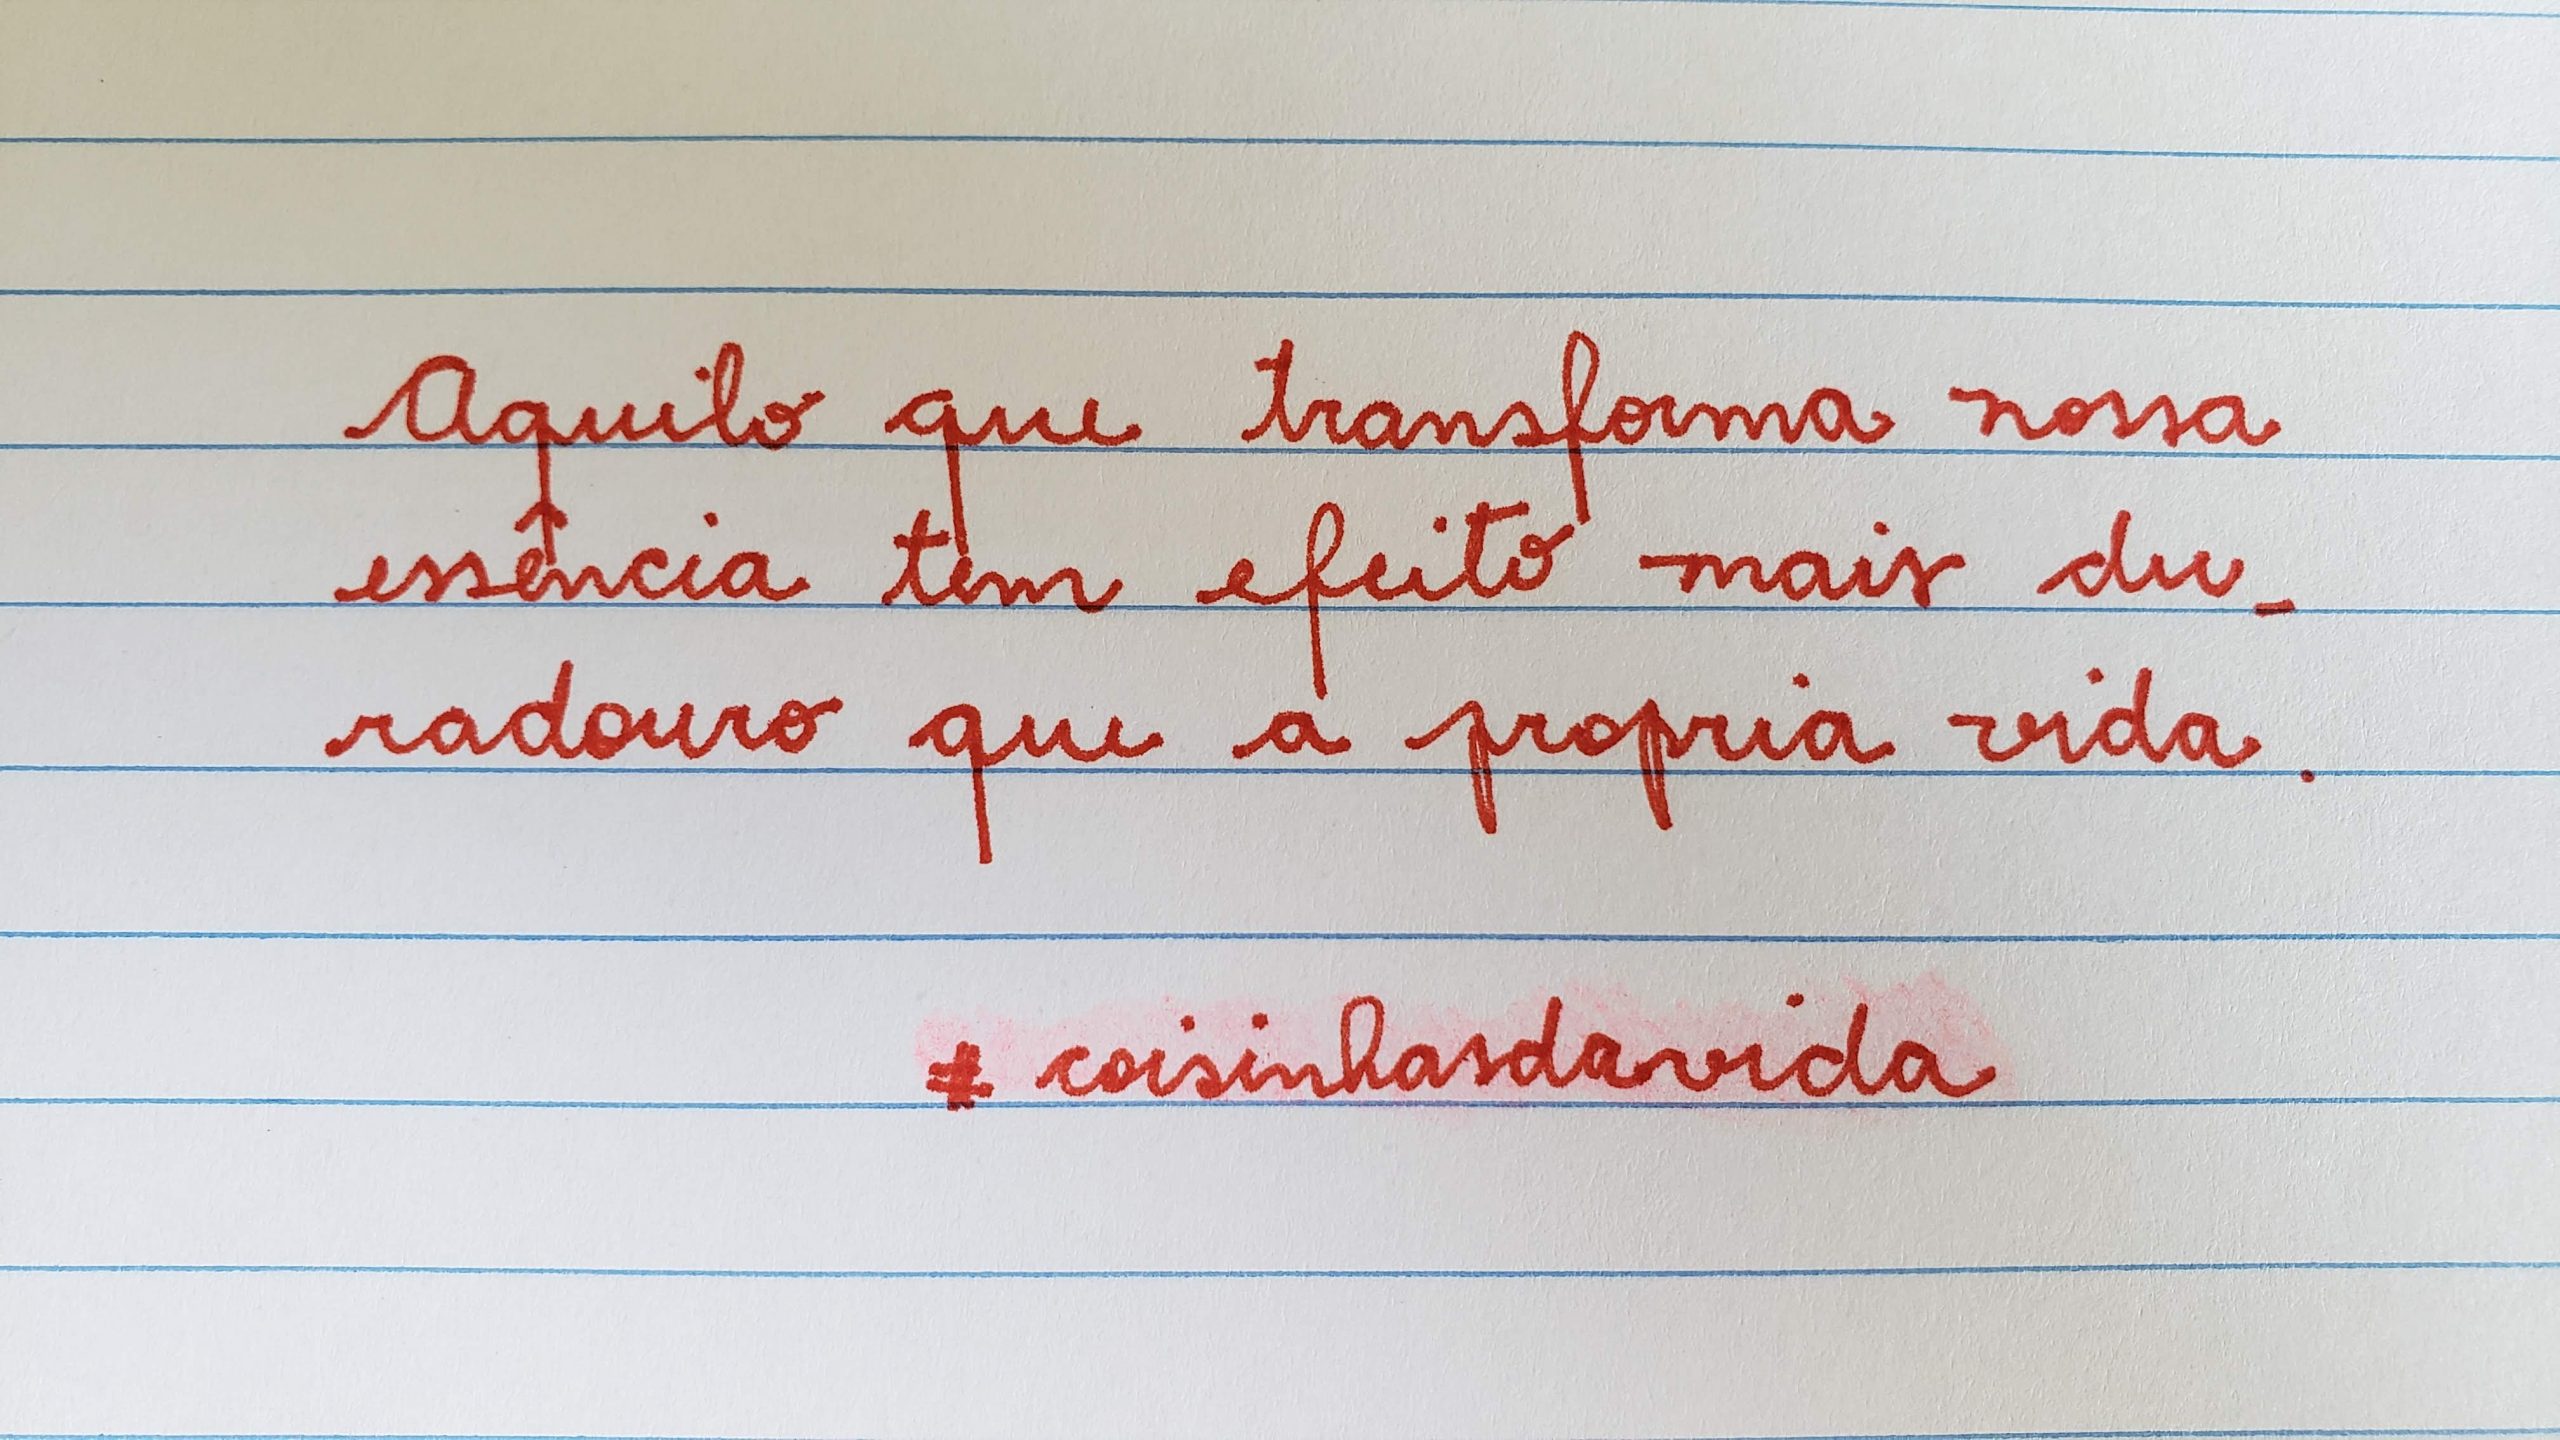 Aquilo que transforma nossa
essência tem efeito mais du-
radouro que a propria vida.
#coisinhasdavida